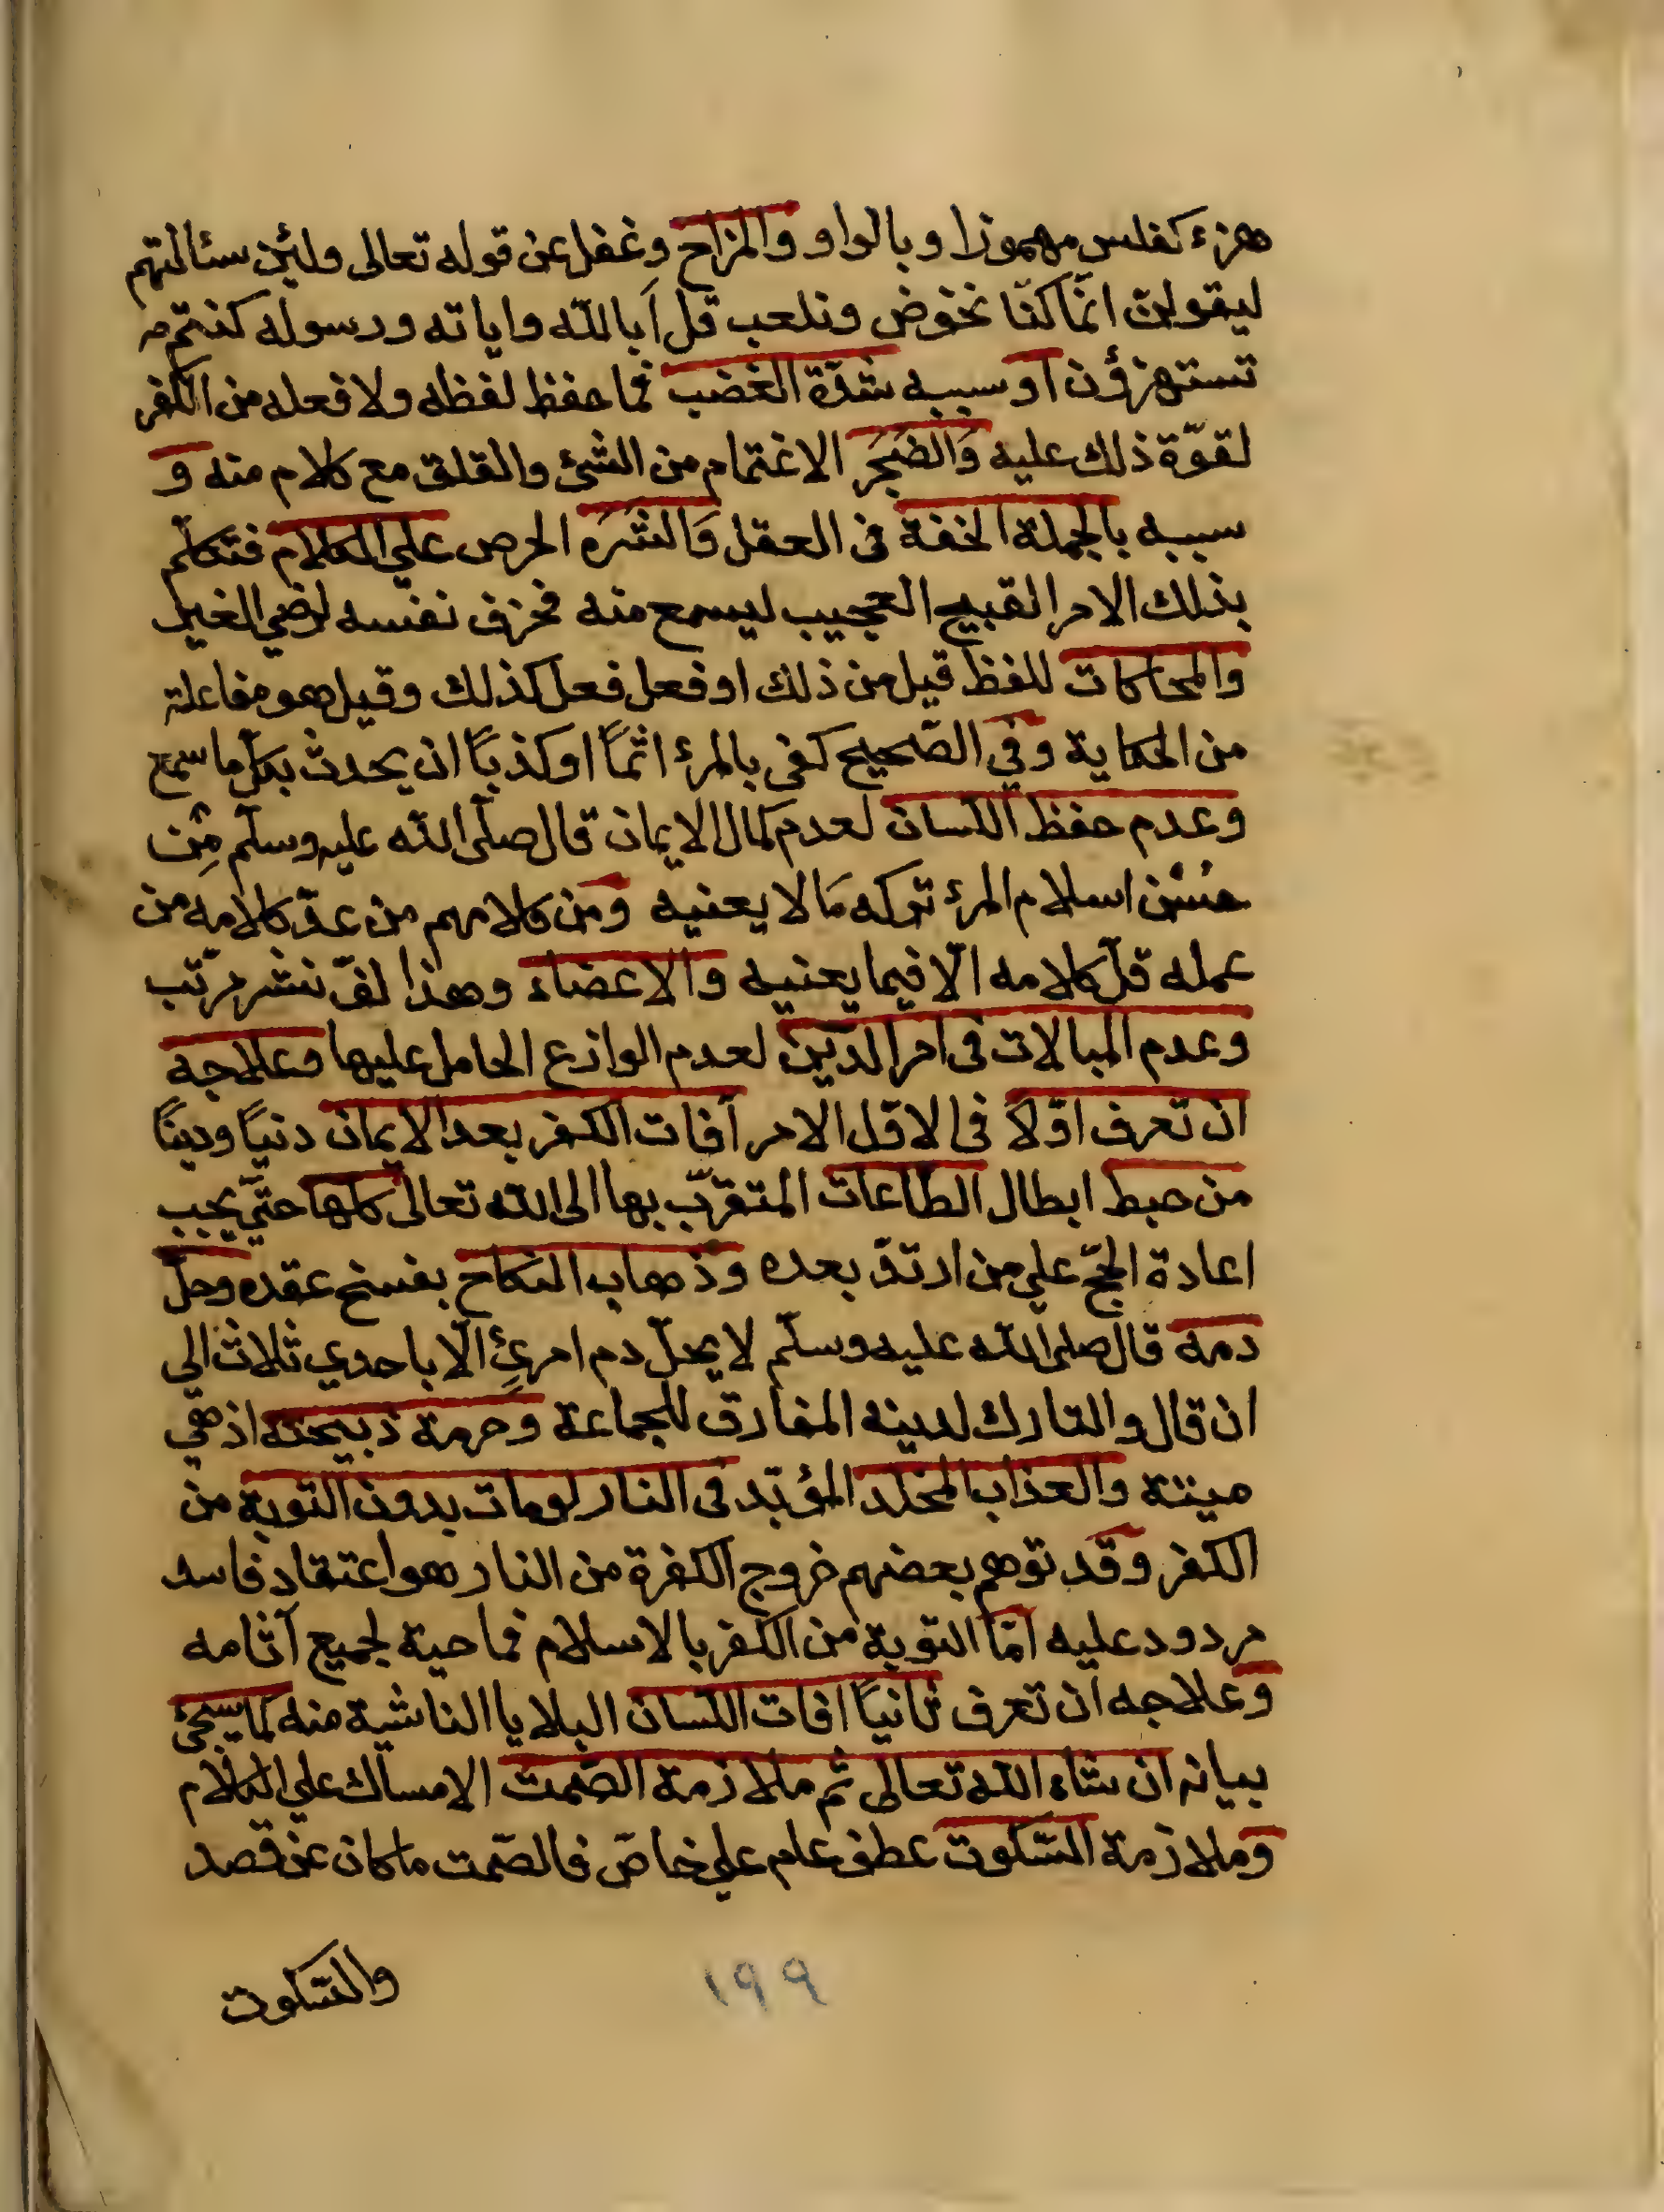 هزء كفلس مهموزا وبالواو والمزاح وغفل عن قوله تعالى ولئن سئالتهم
ليقولن انّما كنّا نخوض ونلعب قل اَبالله واياته ورسوله كنتم
تستهزؤن او سببه شدّة الغضب فما حفظ لفظه ولا فعله من الكفر
لقوّة ذلك عليه وَالضَجَر الاغتمام من الشئ والقلق مع كلام منه و
سببه بالجملة الخفة فى العقل وَالشَرَه الحرص علي الكلام فتكلّم
بذلك الامر القبيح العجيب ليسمع منه فحزف نفسه لرضي الغير
والمحاكات للفظ قيل من ذلك او فعل فعل كذلك وقيل هو مفاعلة
من الحكاية وفي الصّحيح كفى بالمرء اثماً او كذباً ان يحدث بكلّ ما سمع
وعدم حفظ اللسان لعدم كمال الايمان قال صلّى الله عليه وسلّم مِن
حُسْن اسلام المرء تركه مَا لا يعنيه ومن كلامهم من عدّ كلامه من
عمله قلّ كلامه الّا فيما يعنيه والاعضاء وهذا لفّ نشر مرتّب
وعدم المبالات فى امر الدّين لعدم الوازع الحامل عليها وعلاجه
ان تعرف اوّلاً فى لا قل الامر آفات الكفر بعد الايمان دنيًا ودينًا
من حبط ابطال الطاعات المتقرّب بها الى الله تعالى كلها حتّي يجب
اعادة الحجّ علي من ارتدّ بعده وذهاب النكاح بفسخ عقده وحلّ
دمه قال صلى الله عليه وسلّم لا يحلّ دم امرئ الّا باحدي ثلاث الي
ان قال والتارك لدينه المفارق للجماعة وحرمة ذبيحته اذ هي
ميتة والعذاب المخلد المؤبّد فى النار لو مات بدون التوبة من
الكفر وقد توهم بعضهم خروج الكفرة من النار هو اعتقاد فاسد
مردود عليه امّا التوبة من الكفر بالاسلام فماحية لجميع آثامه
وعلاجه ان تعرف ثانياً افات اللسان البلايا الناشية منه كما سيجئ
بيانه ان شاء الله تعالى ثم ملازمة الصّمت الامساك علي الكلام
وملازمة السّكوت عطف عام علي خاصّ فالصّمت ما كان عن قصد
والسّكوت
١٩٩